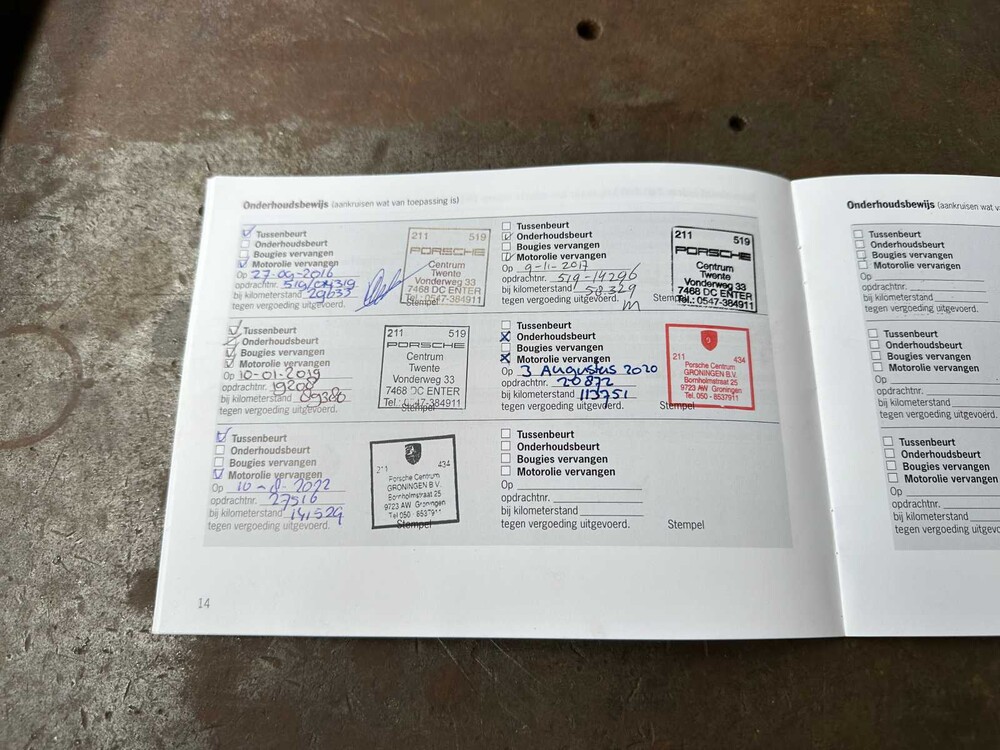 Onderhoudsbewijs (aankruisen wat van toepassing is)
Tussenbeurt
Onderhoudsbeurt
Bougies vervangen
Motorolie vervangen
Op 27-09-2016
opdrachtnr.
bij kilometerstand 29633
tegen vergoeding uitgevoerd.
211 519
PORSCHE
Centrum
Twente
Vonderweg 33
7468 DC ENTER
Tel.: 0547-384911
Stempel
Tussenbeurt
Onderhoudsbeurt
Bougies vervangen
Motorolie vervangen
Op 9-11-2017
opdrachtnr. 519-14296
bij kilometerstand 58329
tegen vergoeding uitgevoerd.
211 519
PORSCHE
Centrum
Twente
Vonderweg 33
7468 DC ENTER
Tel.: 0547-384911
Tussenbeurt
Onderhoudsbeurt
Bougies vervangen
Motorolie vervangen
Op 10-01-2019
opdrachtnr. 19208
bij kilometerstand 89380
tegen vergoeding uitgevoerd.
211 519
PORSCHE
Centrum
Twente
Vonderweg 33
7468 DC ENTER
Tel.: 0547-384911
Stempel
Tussenbeurt
Onderhoudsbeurt
Bougies vervangen
Motorolie vervangen
Op 3 Augustus 2020
opdrachtnr. 20872
bij kilometerstand 113751
tegen vergoeding uitgevoerd.
211 434
Porsche Centrum
GRONINGEN B.V.
Bornholmstraat 25
9723 AW Groningen
Tel. 050 - 8537911
Stempel
Tussenbeurt
Onderhoudsbeurt
Bougies vervangen
Motorolie vervangen
Op 10-8-2022
opdrachtnr. 27516
bij kilometerstand 141529
tegen vergoeding uitgevoerd.
211 434
Porsche Centrum
GRONINGEN B.V.
Bornholmstraat 25
9723 AW Groningen
Tel 050 8537911
Stempel
Tussenbeurt
Onderhoudsbeurt
Bougies vervangen
Motorolie vervangen
Op
opdrachtnr.
bij kilometerstand
tegen vergoeding uitgevoerd.
Stempel
14
Onderhoudsbewijs (aankruisen wat v
Tussenbeurt
Onderhoudsbeurt
Bougies vervangen
Motorolie vervangen
Op
opdrachtnr.
bij kilometerstand
tegen vergoeding uitgevoerd.
Tussenbeurt
Onderhoudsbeurt
Bougies vervangen
Motorolie vervangen
Op
opdrachtnr.
bij kilometerstand
tegen vergoeding uitgevoerd.
Tussenbeurt
Onderhoudsbeurt
Bougies vervangen
Motorolie vervangen
Op
opdrachtnr.
bij kilometerstand
tegen vergoeding uitgevo